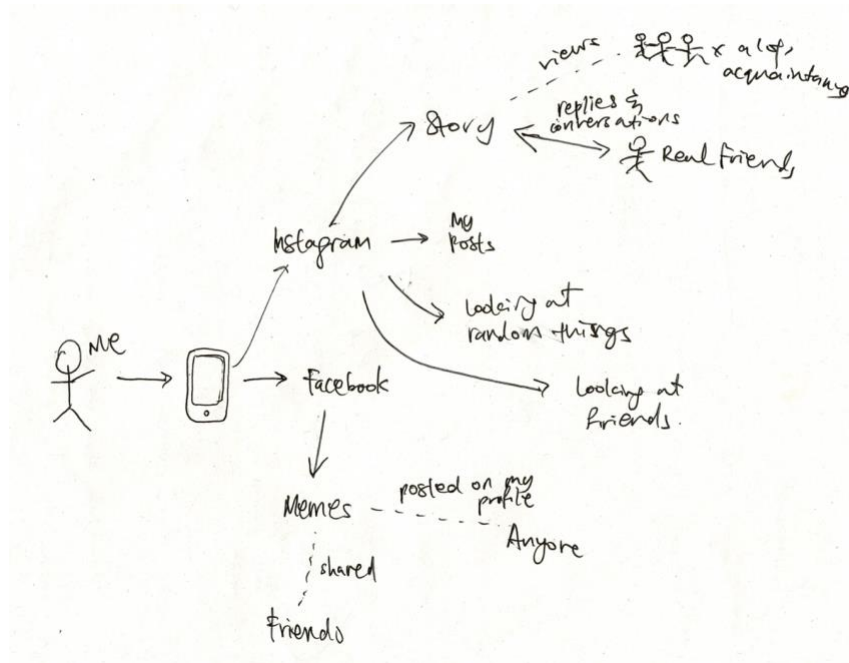 views
x a lot,
acquaintance
Story
replies &
conversations
Real Friends
Instagram
My
Posts
Looking at
random things
Me
Facebook
Looking at
Friends.
Memes
posted on my
profile
Anyone
shared
Friends